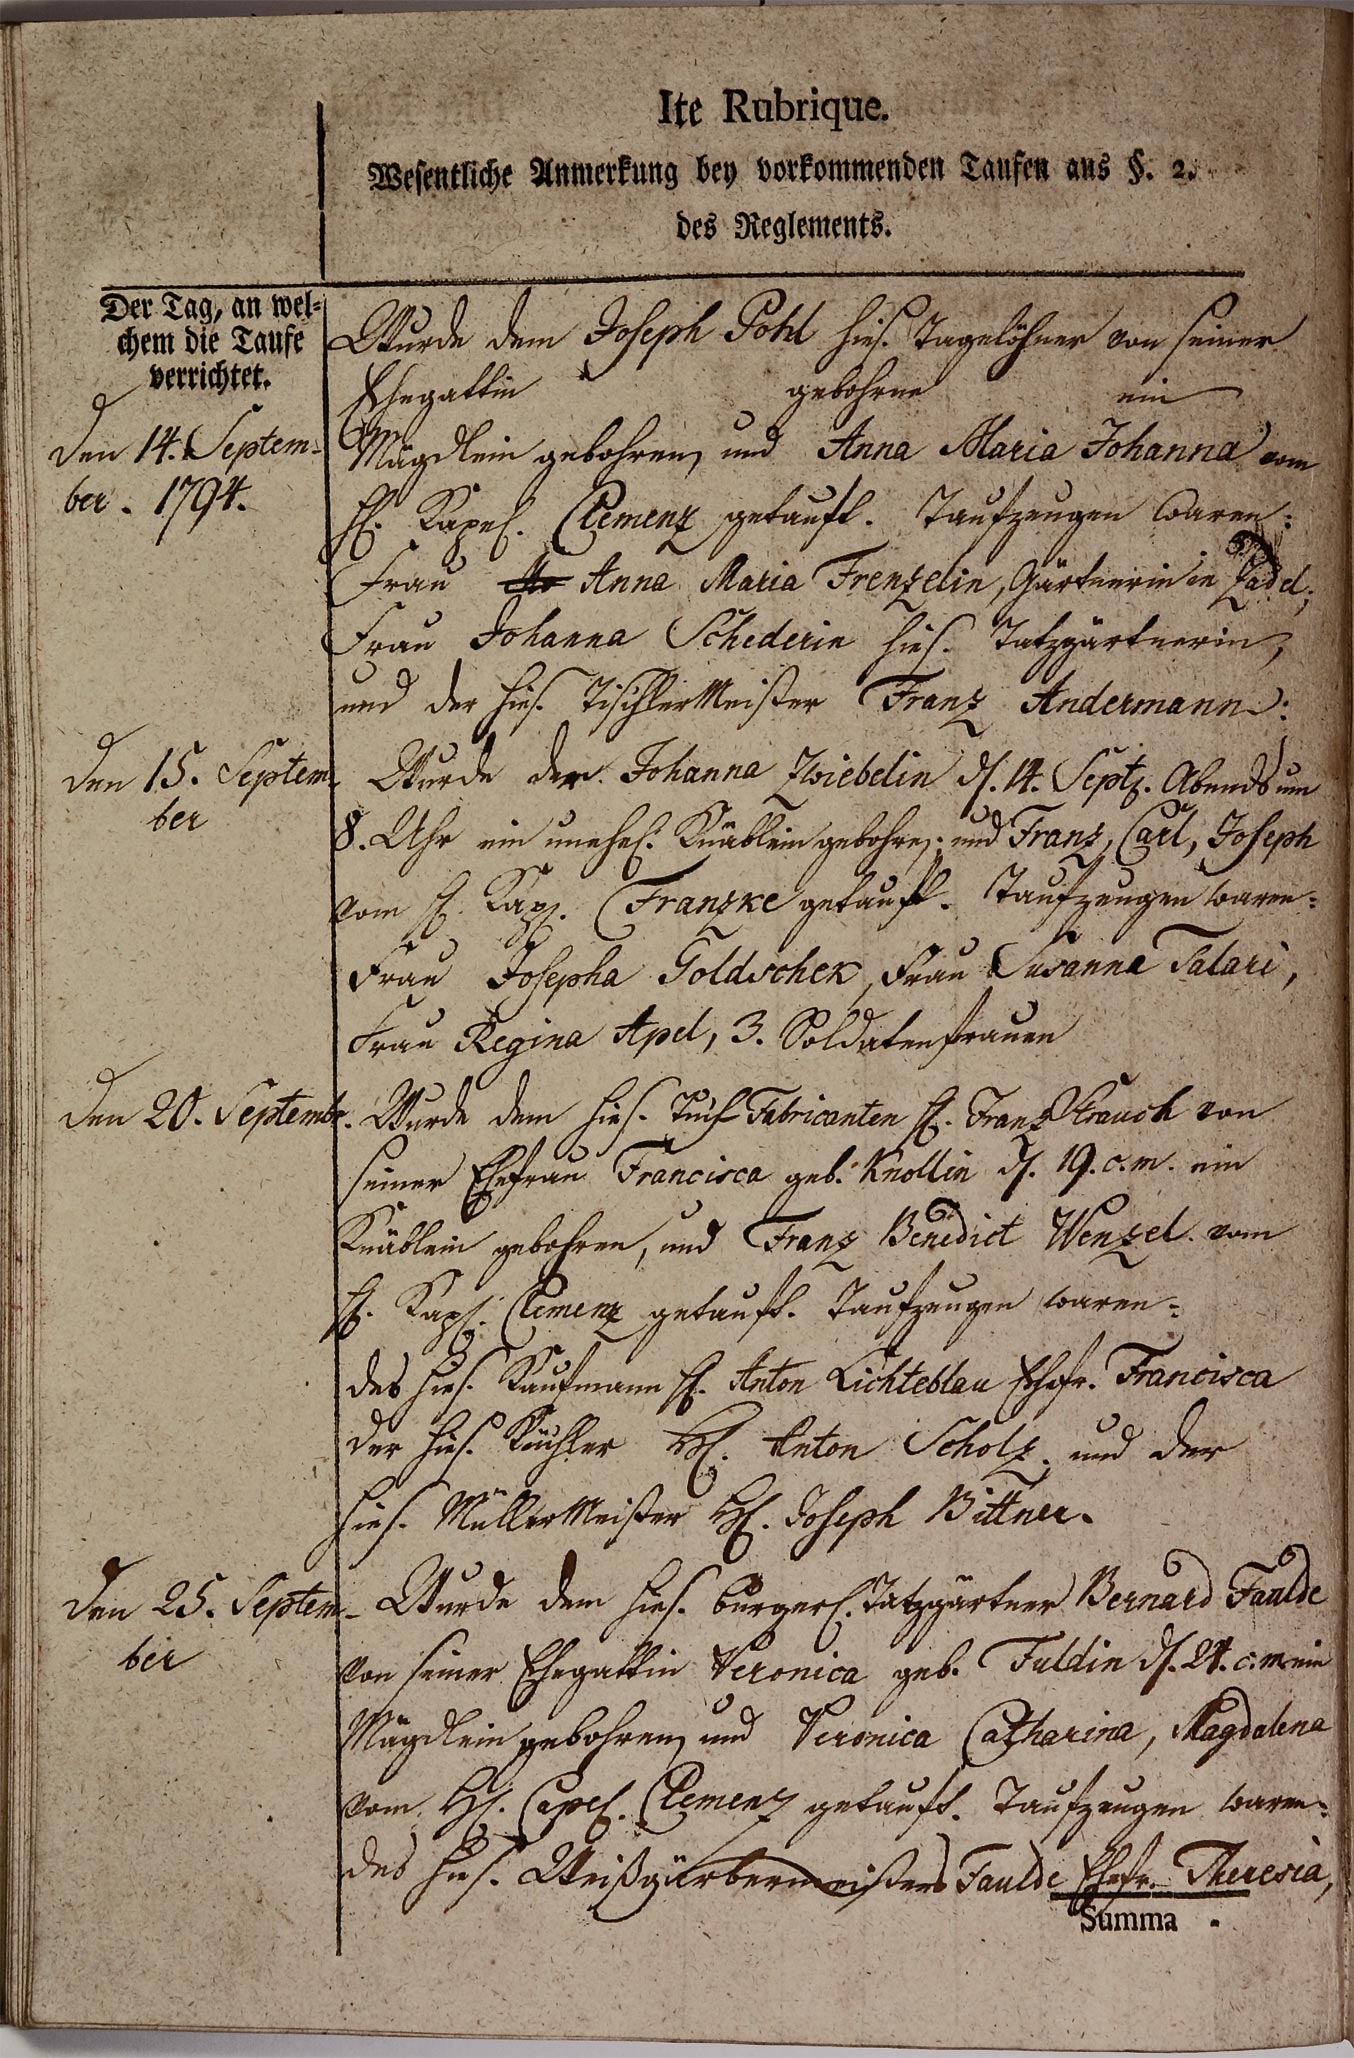 Ite Rubrique.
Wesentliche Anmerkung bey vorkommenden Taufen aus §. 2.
des Reglements.
Der Tag, an wel-
chem die Taufe
verrichtet.
Den 14. Septem-
ber. 1794.
Wurde dem Joseph Pohl hies. Tagelöhner von seiner
Ehegattin gebohrne ein
Mägdlein gebohren, und Anna Maria Johanna vom
H. Kapel. Clemenz getauft. Taufzeugen waren:
Frau Anna Maria Frenzelin, Gärtnerin in Zadel,
Frau Johanna Schederin hies. Tatzgärtnerin,
und der hies. TischlerMeister Franz Andermann.
Den 15. Septem-
ber
Wurde der Johanna Zwiebelin d. 14. Septz. Abends um
8. Uhr ein unehel. Knäblein gebohren, und Franz, Carl, Joseph
vom H. Kap. Franzke getauft. Taufzeugen waren:
Frau Josepha Goldschek, Frau Susanna Salari,
Frau Regina Apel, 3. Soldatenfrauen
Den 20. Septembr.
Wurde dem hies. Fabricanten H. Franz Strauch von
seiner Ehefrau Francisca geb. Knollin d. 19. c. m. ein
Knäblein gebohren, und Franz Benedict Wenzel vom
H. Kapl. Clemenz getauft. Taufzeugen waren:
des hies. Kaufmann H. Anton Lichteblau Ehefr. Francisca
der hies. H. Anton Scholz, und der
hies. MüllerMeister H. Joseph Bittner.
Den 25. Septem-
ber
Wurde dem hies. burgerl. Tatzgärtner Bernard Faulde
von seiner Ehegattin Veronica geb. Fuldin d. 24. c. m. ein
Mägdlein gebohren, und Veronica Catharina, Magdalena
vom H. Capel. Clemenz getauft. Taufzeugen waren:
des hies. Weißgärbermeisters Faulde Ehefr. Theresia,
Summa .